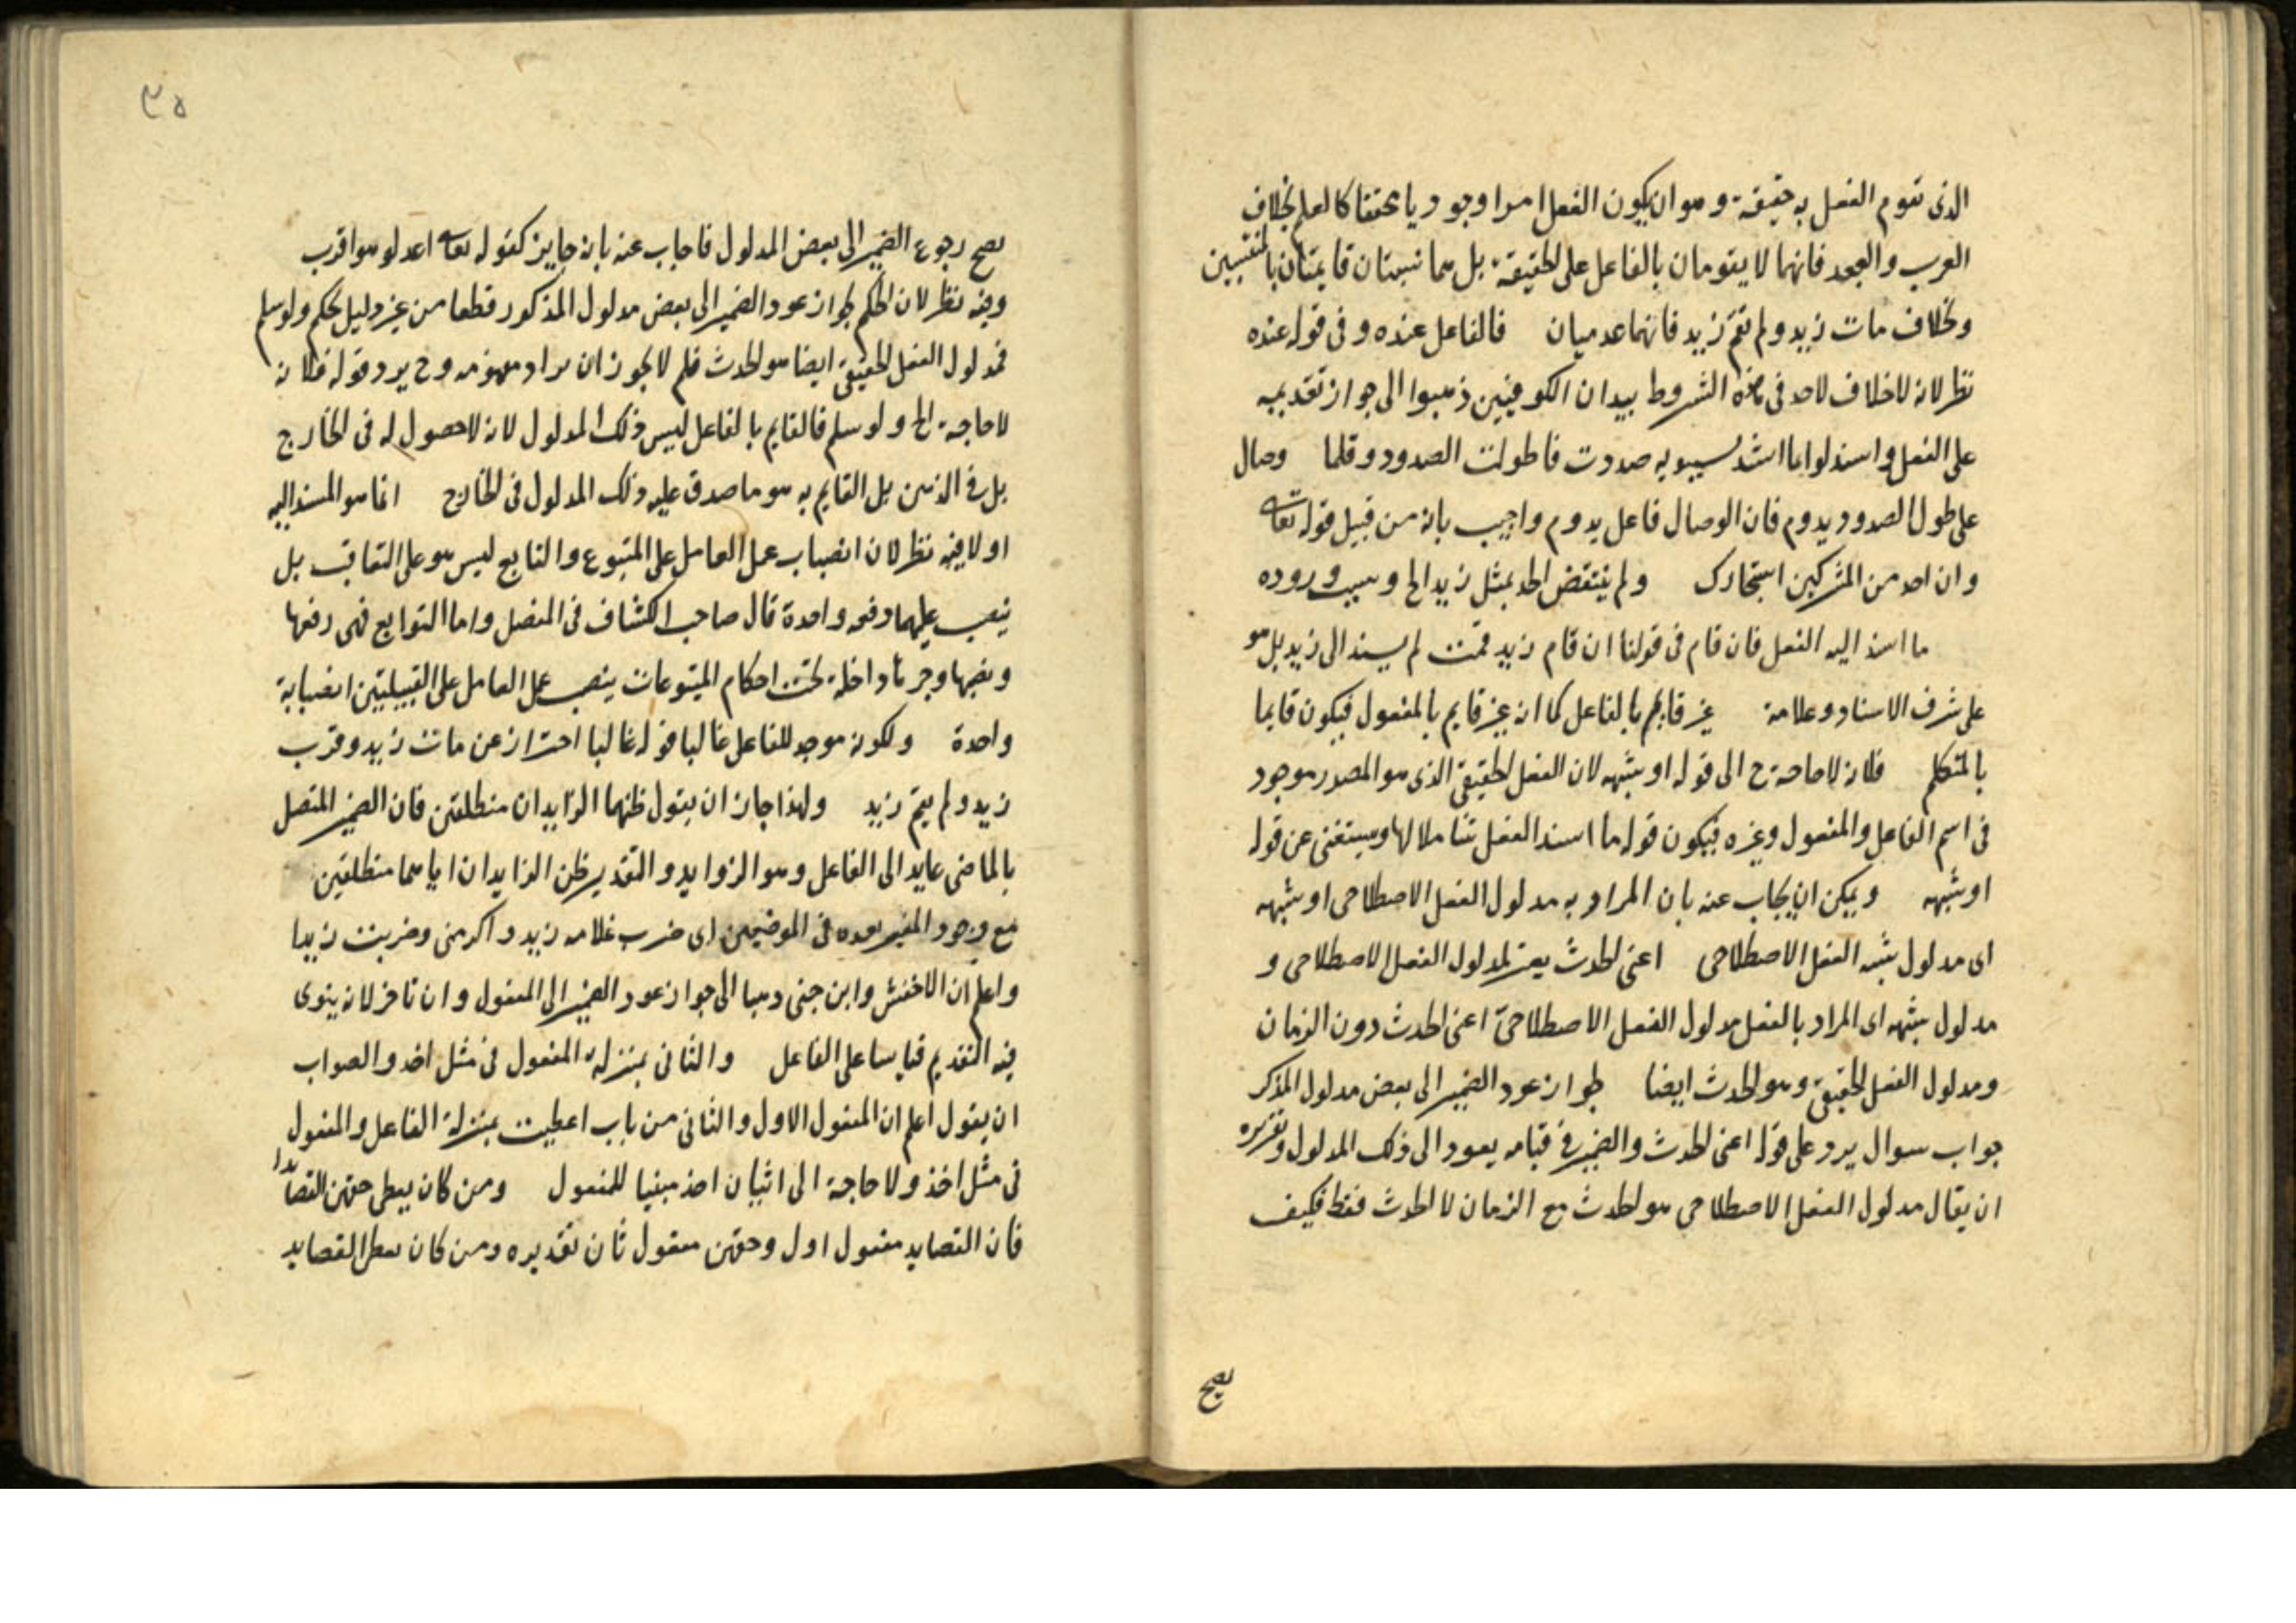 الذى تقوم الفعل به حقيقة وهو ان يكون الفعل امرا وجوديا محققا كالعلم بخلاف
القرب والبعد فانهما لا يقومان بالفاعل على الحقيقة بل هما نسبتان قايمتان بالمنتسبين
وبخلاف مات زيد ولم يقم زيد فانهما عدميان فالفاعل عنده وفى قوله عنده
نظر لانه لا خلاف لاحد فى هذه الشروط بيد ان الكوفيين ذهبوا الى جواز تقديمه
على الفعل واستدلوا بما انشد سيبويه صددت فاطولت الصدود وقلما وصال
على طول الصدود يدوم فان الوصال فاعل يدوم واجيب بانه من قبيل قوله تعالى
وان احد من المشركين استجارك ولم ينتقض الحد بمثل زيد الخ وسبب وروده
ما اسند اليه الفعل فان قام فى قولنا ان قام زيد قمت لم يسند الى زيد بل هو
على شرف الاسناد وعلامة غير قايم بالفاعل كما انه غير قايم بالمفعول فيكون قايما
بالمتكلم فلانه لا حاجة ح الى قوله او شبهه لان الفعل الحقيقى الذى هو المصدر موجود
فى اسم الفاعل والمفعول وغيره فيكون قوله ما اسند الفعل متناملا لها ويستغنى عن قوله
او شبهه ويمكن ان يجاب عنه بان المراد به مدلول الفعل الاصطلاحى او شبهه
اى مدلول شبه الفعل الاصطلاحى اعنى الحدث يعنى لمدلول الفعل الاصطلاحى و
مدلول شبهه اى المراد بالفعل مدلول الفعل الاصطلاحى اعنى الحدث دون الزمان
ومدلول الفعل الحقيقى وهو الحدث ايضا لجواز عود الضمير الى بعض مدلول المذكر
جواب سوال يرد على قوله اعنى الحدث والضمير فى قيامه يعود الى ذلك المدلول وتقريره
ان يقال مدلول الفعل الاصطلاحى هو الحدث مع الزمان لا الحدث فقط فكيف
يصح
٣٥
يصح رجوع الضمير الى بعض المدلول فاجاب عنه بانه جايز كقوله تعالى اعدلوا هو اقرب
وفيه نظر لان الحكم لجواز عود الضمير الى بعض مدلول المذكور قطعا من غير دليل تحكم ولو سلم
فمدلول الفعل الحقيقى ايضا هو الحدث فلم لا يجوز ان يراد مفهومه وح يرد قوله فلانه
لا حاجة الخ ولو سلم فالقايم بالفاعل ليس ذلك المدلول لانه لا حصول له فى الخارج
بل فى الذهن بل القايم به هو ما صدق عليه ذلك المدلول فى الخارج انما هو المسند اليه
اولا فيه نظر لان انصباب عمل العامل على المتبوع والتابع ليس هو على التعاقب بل
ينصب عليهما دفعه واحدة قال صاحب الكشاف فى المفصل واما التوابع فهى رفعها
ونصبها وجرها داخلة تحت احكام المتبوعات ينصب عمل العامل على القبيلتين انصبابة
واحدة ولكونه موجد للفاعل غالبا قوله غالبا احتراز عن مات زيد وقرب
زيد ولم يقم زيد ولهذا جاز ان يقول ظنهما الزايدان منطلقين فان الضمير المتصل
بالماضى عايد الى الفاعل وهو الزوايد والتقدير ظن الزايدان اياهما منطلقين
مع وجود المفسر بعده فى الموضعين اى ضرب غلامه زيد واكرمنى وضربت زيدا
واعلم ان الاخفش وابن جنى ذهبا الى جواز عود الضمير الى المفعول وان تاخر لانه ينوى
فيه التقديم قياسا على الفاعل والثانى بمنزلة المفعول فى مثل اخذ والصواب
ان يقول اعلم ان المفعول الاول والثانى من باب اعطيت بمنزلة الفاعل والمفعول
فى مثل اخذ ولا حاجة الى اتيان اخذ مبنيا للمفعول ومن كان يعطى حقهن القصايدا
فان القصايد مفعول اول وحقهن مفعول ثان تقديره ومن كان يعطى القصايد